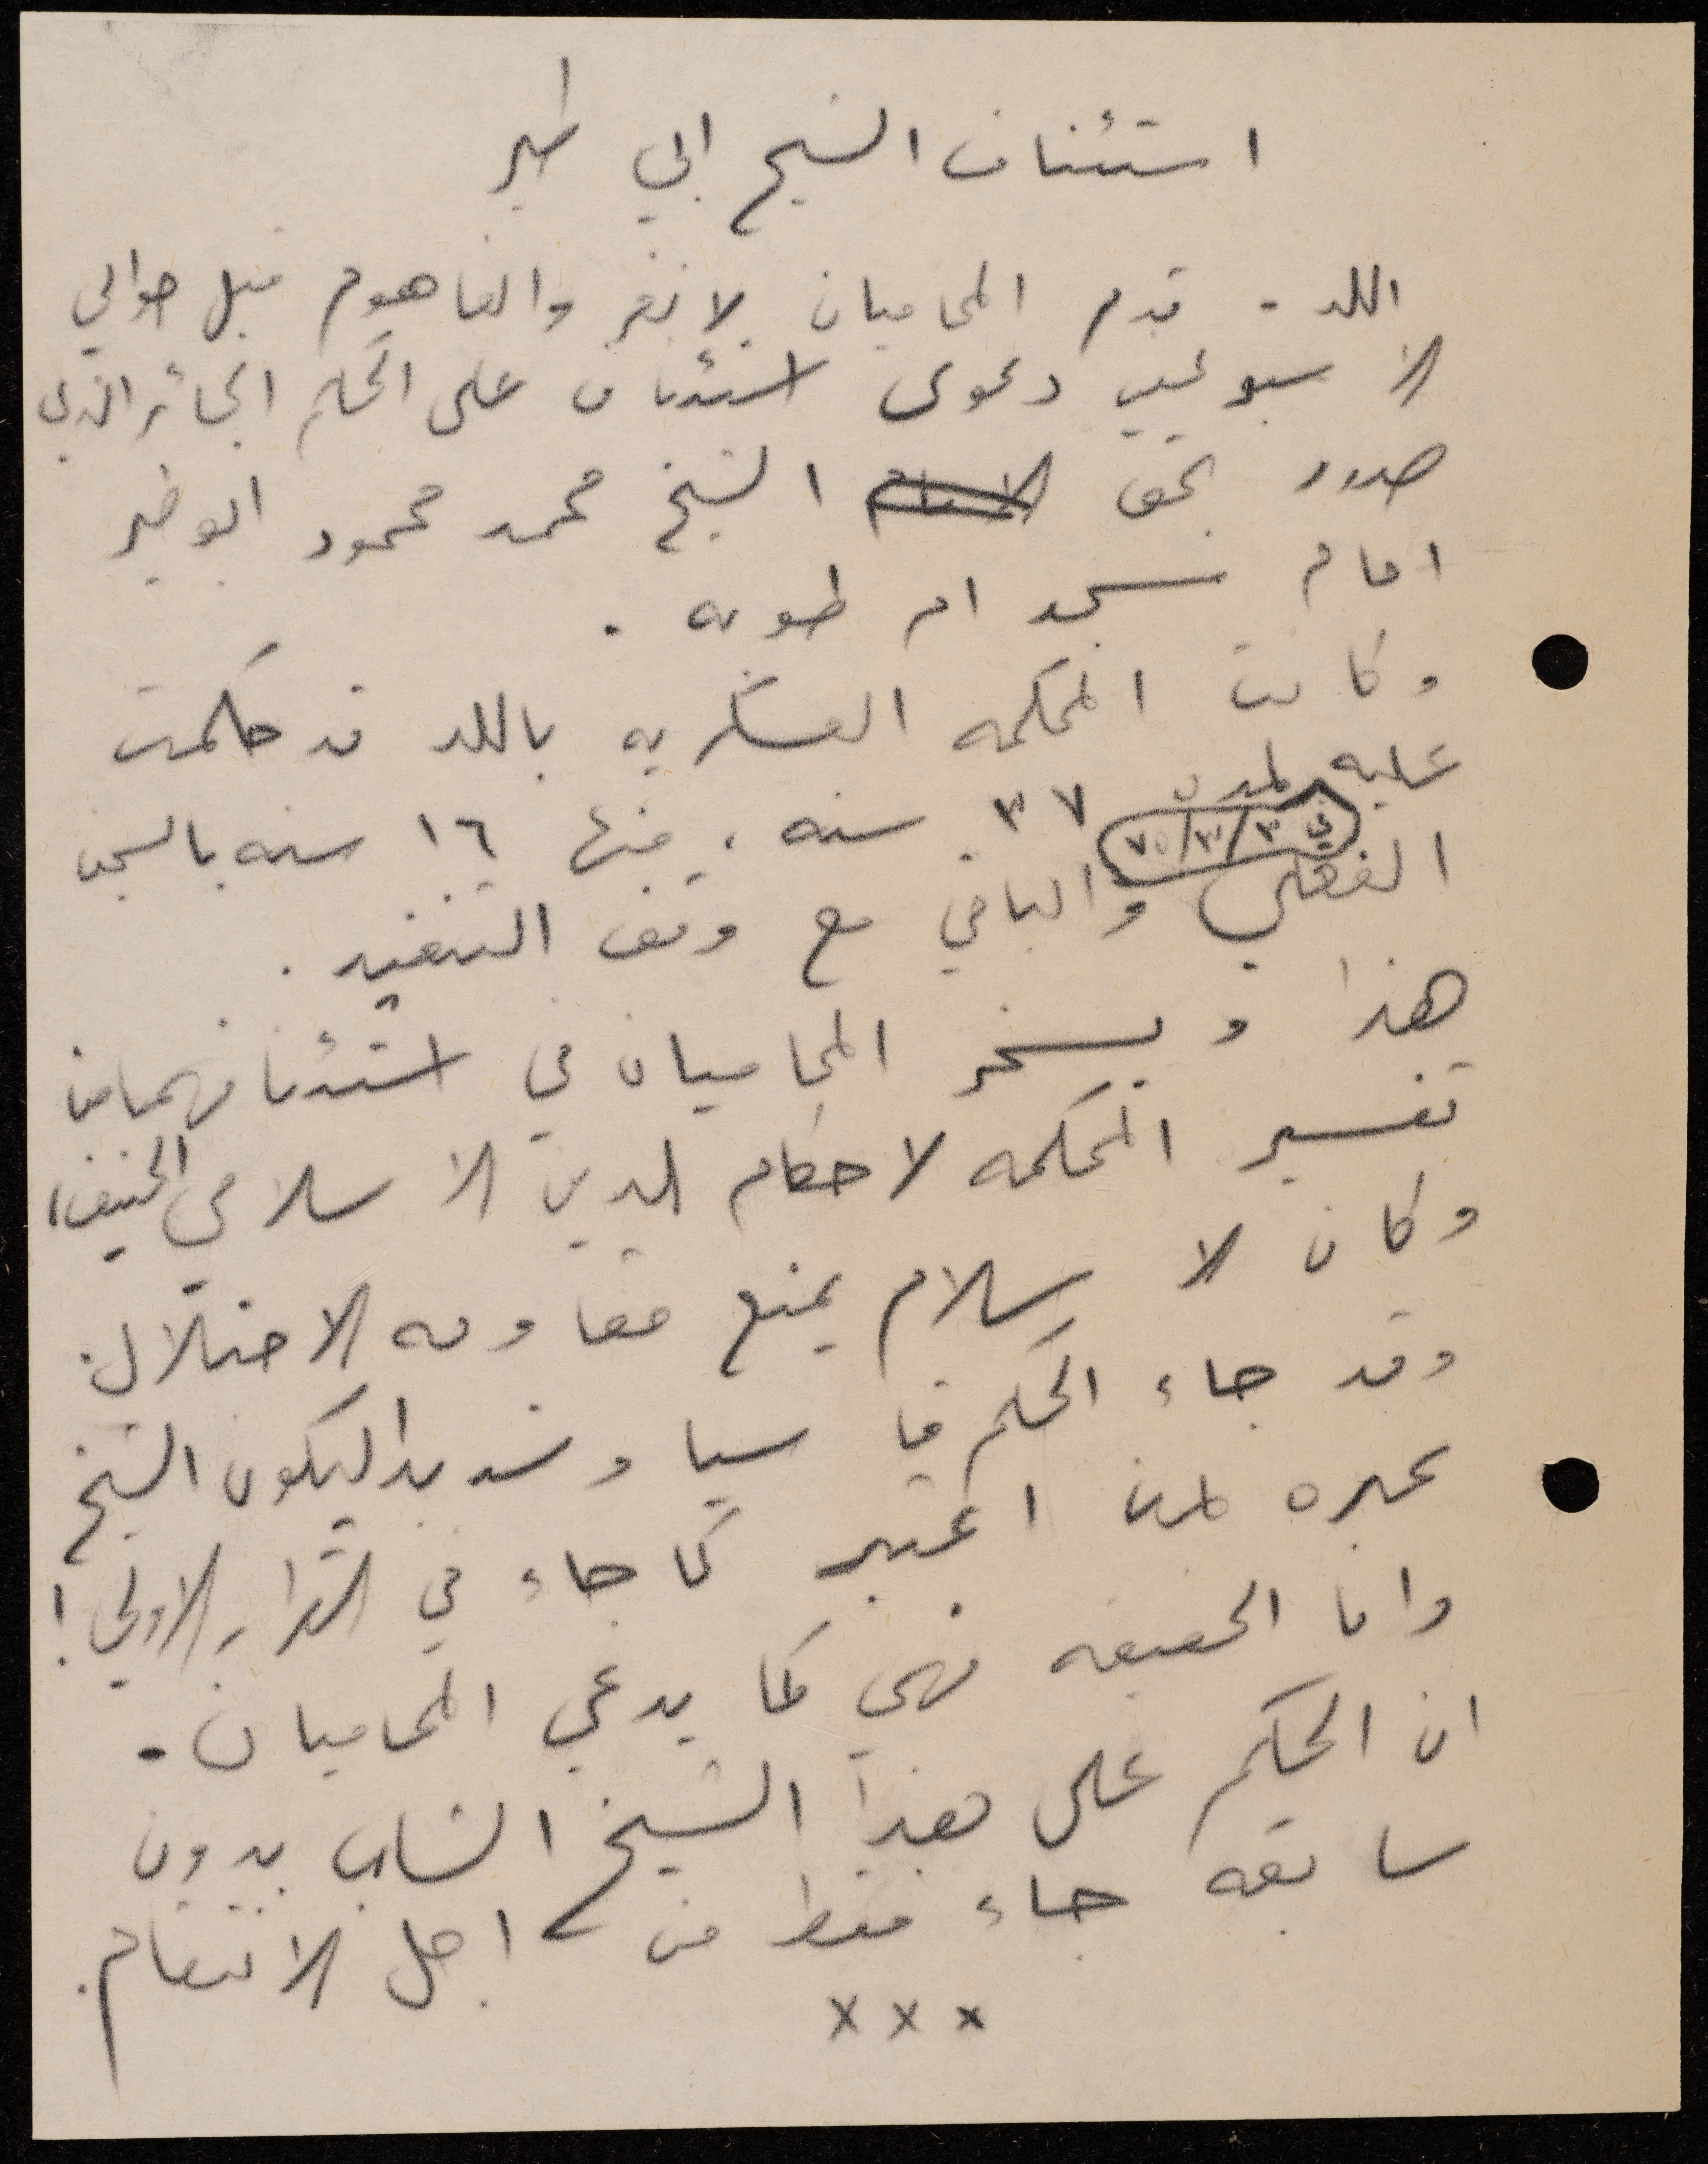 استئناف الشيخ ابي طير
اللد - قدم المحاميان لانغر والفاهوم قبل حوالي
الاسبوعين دعوى استئناف على الحكم الجائر الذي
صدر بحق الشيخ محمد محمود ابو طير
امام مسجد ام طوبه .
وكانت المحكمه العسكريه باللد قد حكمت
عليه لمدة ٣٧ سنه ، منها ١٦ سنه بالسجن
في ٣/٣١/٧٥
الفعلي والباقي مع وقف التنفيذ .
هذا ويسخر المحاميان في استئنافهما من
تفسير المحكمه لاحكام الدين الاسلامي الحنيف ،
وكان الاسلام يمنع مقاومه الاحتلال .
وقد جاء الحكم قاسيا وشديدا ليكون الشيخ
عبره لمن اعتبر كما جاء في القرار الاولي !
واما الحقيقه فهي كما يدعي المحاميان -
ان الحكم على هذا الشيخ الشاب بدون
سابقه جاء فقط من اجل الانتقام .
x x x